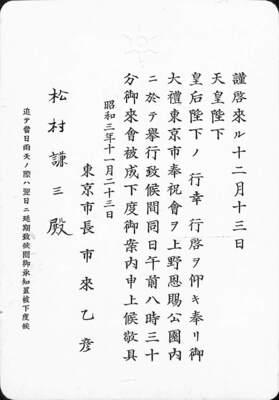 謹啓來ル十二月十三日
天皇陛下
皇后陛下ノ行幸 行啓ヲ仰キ奉リ御
大禮東京市奉祝會ヲ上野恩賜公園內
ニ於テ擧行致候間同日午前八時三十
分御來會被成下度御案內申上候敬具
昭和三年十一月二十三日
東京市長 市來乙彥
松村謙三殿
追テ當日雨天ノ際ハ翌日ニ延期致候間御承知置被下度候